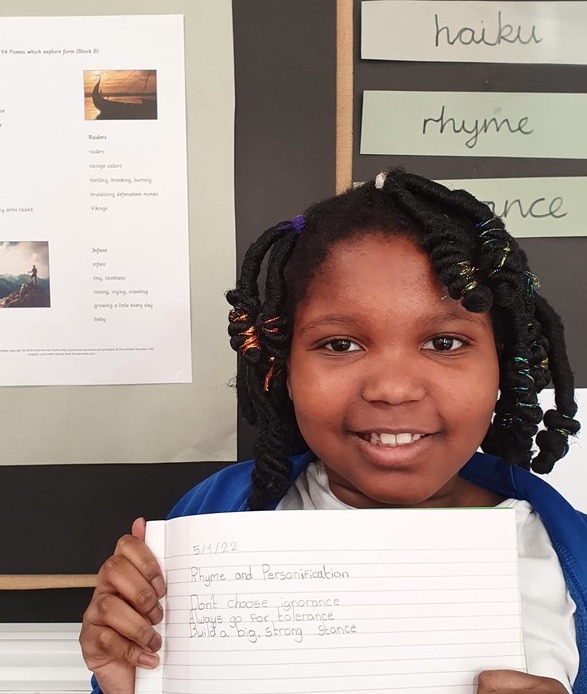 Y4 Poems which explore form (Block B)
Raiders
raiders
savage sailors
battling, breaking, burning
brutalising defenceless monks
Vikings
arms raised
Infant
infant
tiny, toothless
cooing, crying, crawling
growing a little every day
baby
haiku
rhyme
ance
5/1/22
Rhyme and Personification
Don't choose ignorance
Always go for tolerance
Build a big, strong stance